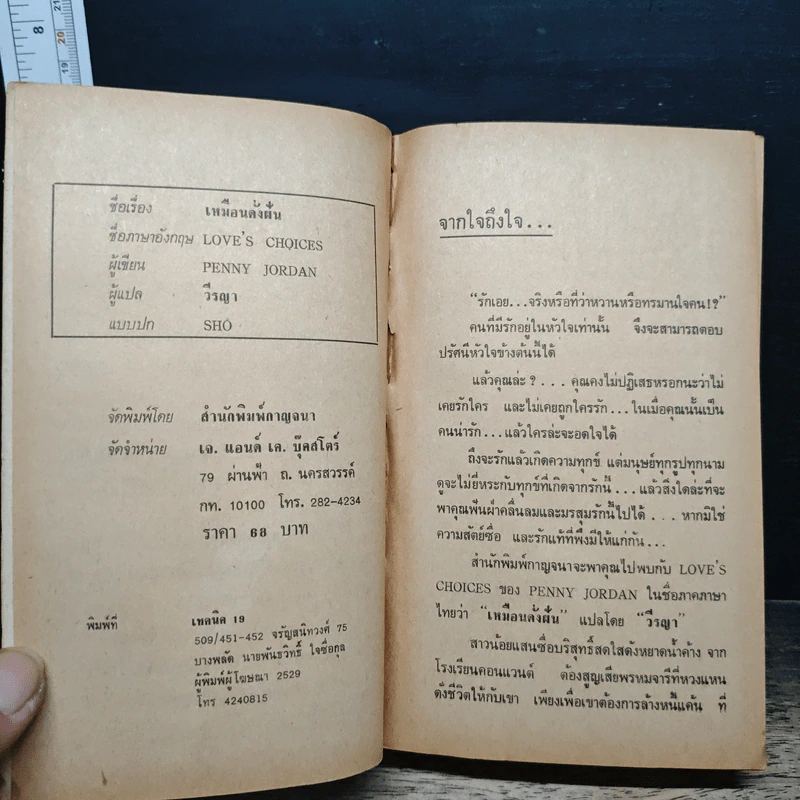 8
20
19
ชื่อเรื่อง เหมือนดั่งฝัน
ชื่อภาษาอังกฤษ LOVE'S CHOICES
ผู้เขียน PENNY JORDAN
ผู้แปล วีรญา
แบบปก SHO
จัดพิมพ์โดย สำนักพิมพ์กาญจนา
จัดจำหน่าย เจ. แอนด์ เค. บุ๊คสโตร์
79 ผ่านฟ้า ถ. นครสวรรค์
กท. 10100 โทร. 282-4234
ราคา 68 บาท
พิมพ์ที่ เทคนิค 19
509/451-452 จรัญสนิทวงศ์ 75
บางพลัด นายพันธวิทธิ์ ใจซื่อกุล
ผู้พิมพ์ผู้โฆษณา 2529
โทร 4240815
จากใจถึงใจ...
"รักเอย...จริงหรือที่ว่าหวานหรือทรมานใจคน!?"
คนที่มีรักอยู่ในหัวใจเท่านั้น จึงจะสามารถตอบ
ปรัศนีหัวใจข้างต้นนี้ได้
แล้วคุณล่ะ?... คุณคงไม่ปฏิเสธหรอกนะว่าไม่
เคยรักใคร และไม่เคยถูกใครรัก...ในเมื่อคุณนั้นเป็น
คนน่ารัก...แล้วใครล่ะจะอดใจได้
ถึงจะรักแล้วเกิดความทุกข์ แต่มนุษย์ทุกรูปทุกนาม
ดูจะไม่ยี่หระกับทุกข์ที่เกิดจากรักนี้...แล้วสิ่งใดล่ะที่จะ
พาคุณฟันฝ่าคลื่นลมและมรสุมรักนี้ไปได้... หากมิใช่
ความสัตย์ซื่อ และรักแท้ที่พึงมีให้แก่กัน...
สำนักพิมพ์กาญจนาจะพาคุณไปพบกับ LOVE'S
CHOICES ของ PENNY JORDAN ในชื่อภาคภาษา
ไทยว่า "เหมือนดั่งฝัน" แปลโดย "วีรญา"
สาวน้อยแสนซื่อบริสุทธิ์สดใสดังหยาดน้ำค้าง จาก
โรงเรียนคอนแวนต์ ต้องสูญเสียพรหมจารีที่หวงแหน
ดั่งชีวิตให้กับเขา เพียงเพื่อเขาต้องการล้างหนี้แค้น ที่